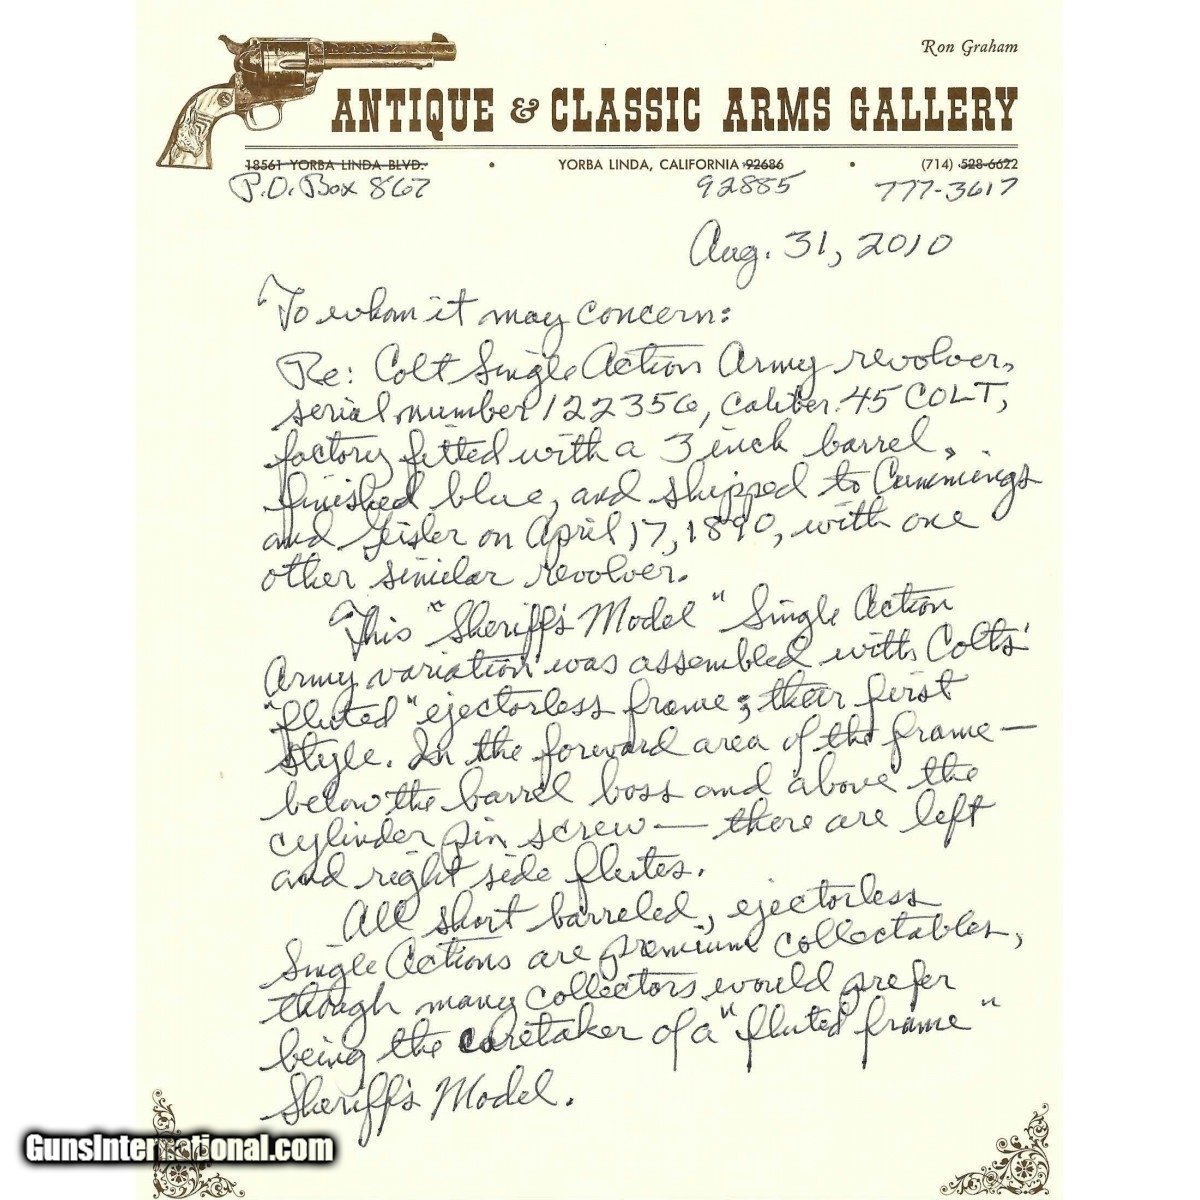 Ron Graham
ANTIQUE & CLASSIC ARMS GALLERY
18561 YORBA LINDA BLVD. • YORBA LINDA, CALIFORNIA 92686 • (714) 528-6622
P.O. Box 867 92885 777-3617
Aug. 31, 2010
To whom it may concern:
Re: Colt Single Action Army revolver,
serial number 122356, caliber .45 COLT,
factory fitted with a 3 inch barrel,
finished blue, and shipped to Cummings
and Geisler on April 17, 1890, with one
other similar revolver.
This "Sheriff's Model" Single Action
Army variation was assembled with Colts'
"fluted" ejectorless frame; their first
style. In the forward area of the frame —
below the barrel boss and above the
cylinder pin screw — there are left
and right side flutes.
All short barreled, ejectorless
Single Actions are premium collectables,
though many collectors would prefer
being the caretaker of a "fluted frame"
Sheriff's Model.
GunsInternational.com